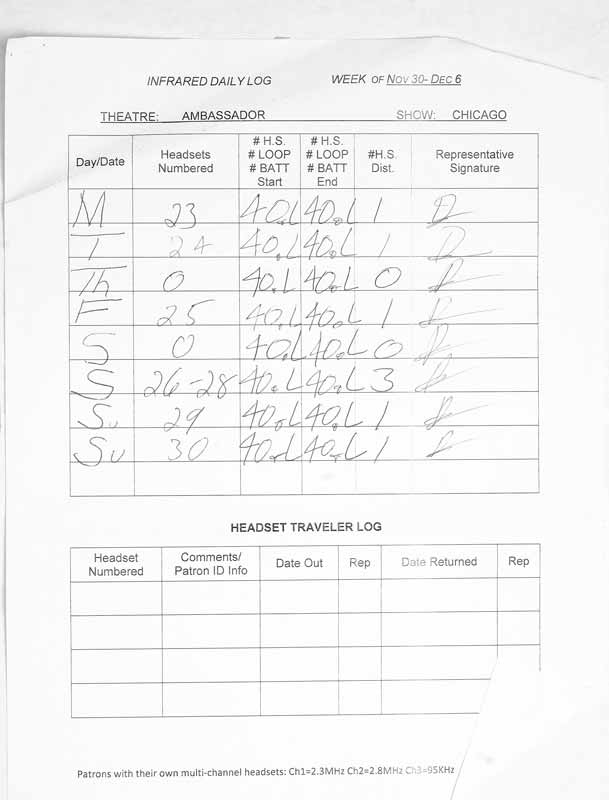 INFRARED DAILY LOG WEEK OF NOV 30- DEC 6
THEATRE: AMBASSADOR SHOW: CHICAGO
Day/Date Headsets Numbered # H.S. # LOOP # BATT Start # H.S. # LOOP # BATT End #H.S. Dist. Representative Signature
M 23 40.L 40.L 1
T 24 40.L 40.L 1
Th 0 40.L 40.L 0
F 25 40.L 40.L 1
S 0 40.L 40.L 0
S 26-28 40.L 40.L 3
Su 29 40.L 40.L 1
Su 30 40.L 40.L 1
HEADSET TRAVELER LOG
Headset Numbered Comments/ Patron ID Info Date Out Rep Date Returned Rep
Patrons with their own multi-channel headsets: Ch1=2.3MHz Ch2=2.8MHz Ch3=95KHz